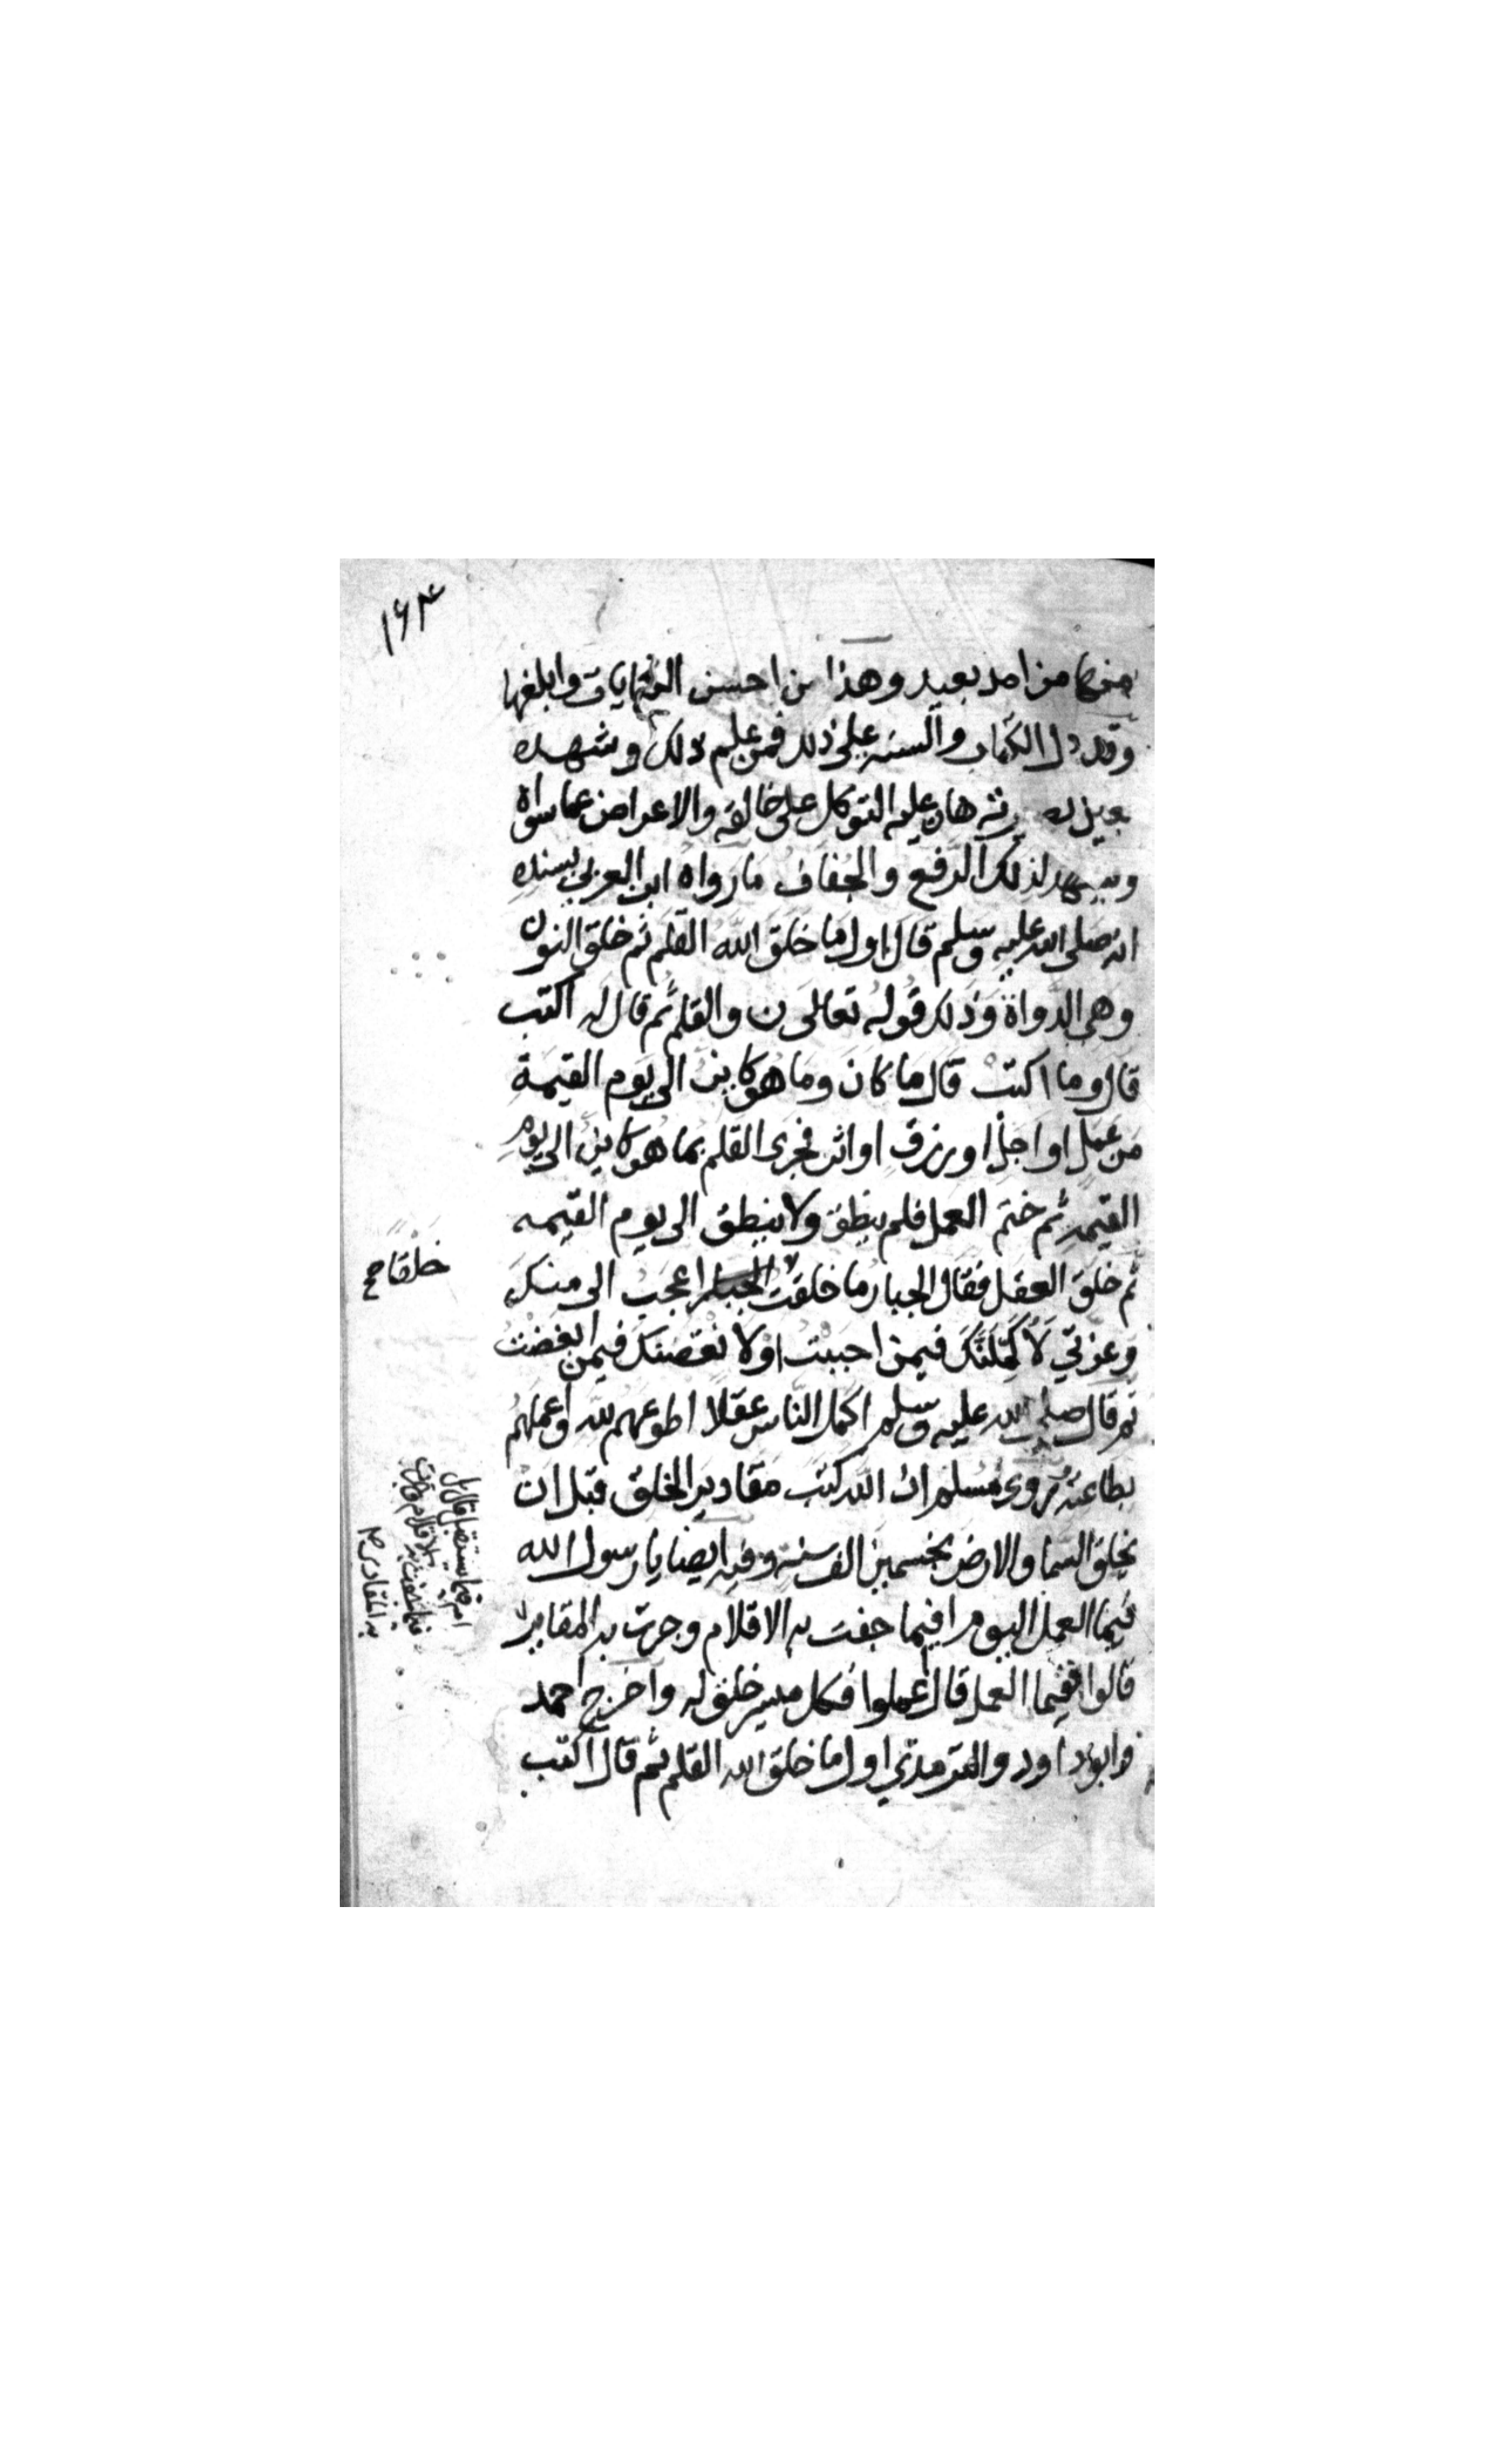 ١٦٤
منها من امد بعيد وهذا من احسن الكنايات وابلغها
وقد دل الكتاب والسنه على ذلك فمن علم ذلك وشهده
بعين هان عليه التوكل على خالقه والاعراض عما سواه
ويشهد لذلك الرفع والجفاف ما رواه ابن العربي بسنده
انه صلى الله عليه وسلم قال اول ما خلق الله القلم ثم خلق النون
وهي الدواة وذلك قوله تعالى ن والقلم ثم قال له اكتب
قال وما اكتب قال ما كان وما هو كاين الى يوم القيمة
من عمل او اجل او رزق او اثر فجرى القلم بما هو كاين الى يوم
القيمه ثم ختم العمل فلم ينطق ولا ينطق الى يوم القيمه
ثم خلق العقل فقال الجبار ما خلقت اعجب الى منك
خلقا صح
وعزتي لاكملنك فيمن احببت او لانقصنك فيمن ابغضت
ثم قال صلى الله عليه وسلم اكمل الناس عقلا اطوعهم لله واعملهم
بطاعته وروى مسلم ان الله كتب مقادير الخلق قبل ان
يخلق السما والارض بخمسين الف سنه وفيه ايضا يا رسول الله
فيما العمل اليوم افيما جفت به الاقلام وجرت به المقادير
ام فيما يستقبل قال بل
فيما جفت به الاقلام وجرت
به المقادير صح
قالوا ففيما العمل قال اعملوا فكل ميسر خلق له واخرج احمد
وابو داود والترمذي اول ما خلق الله القلم ثم قال اكتب